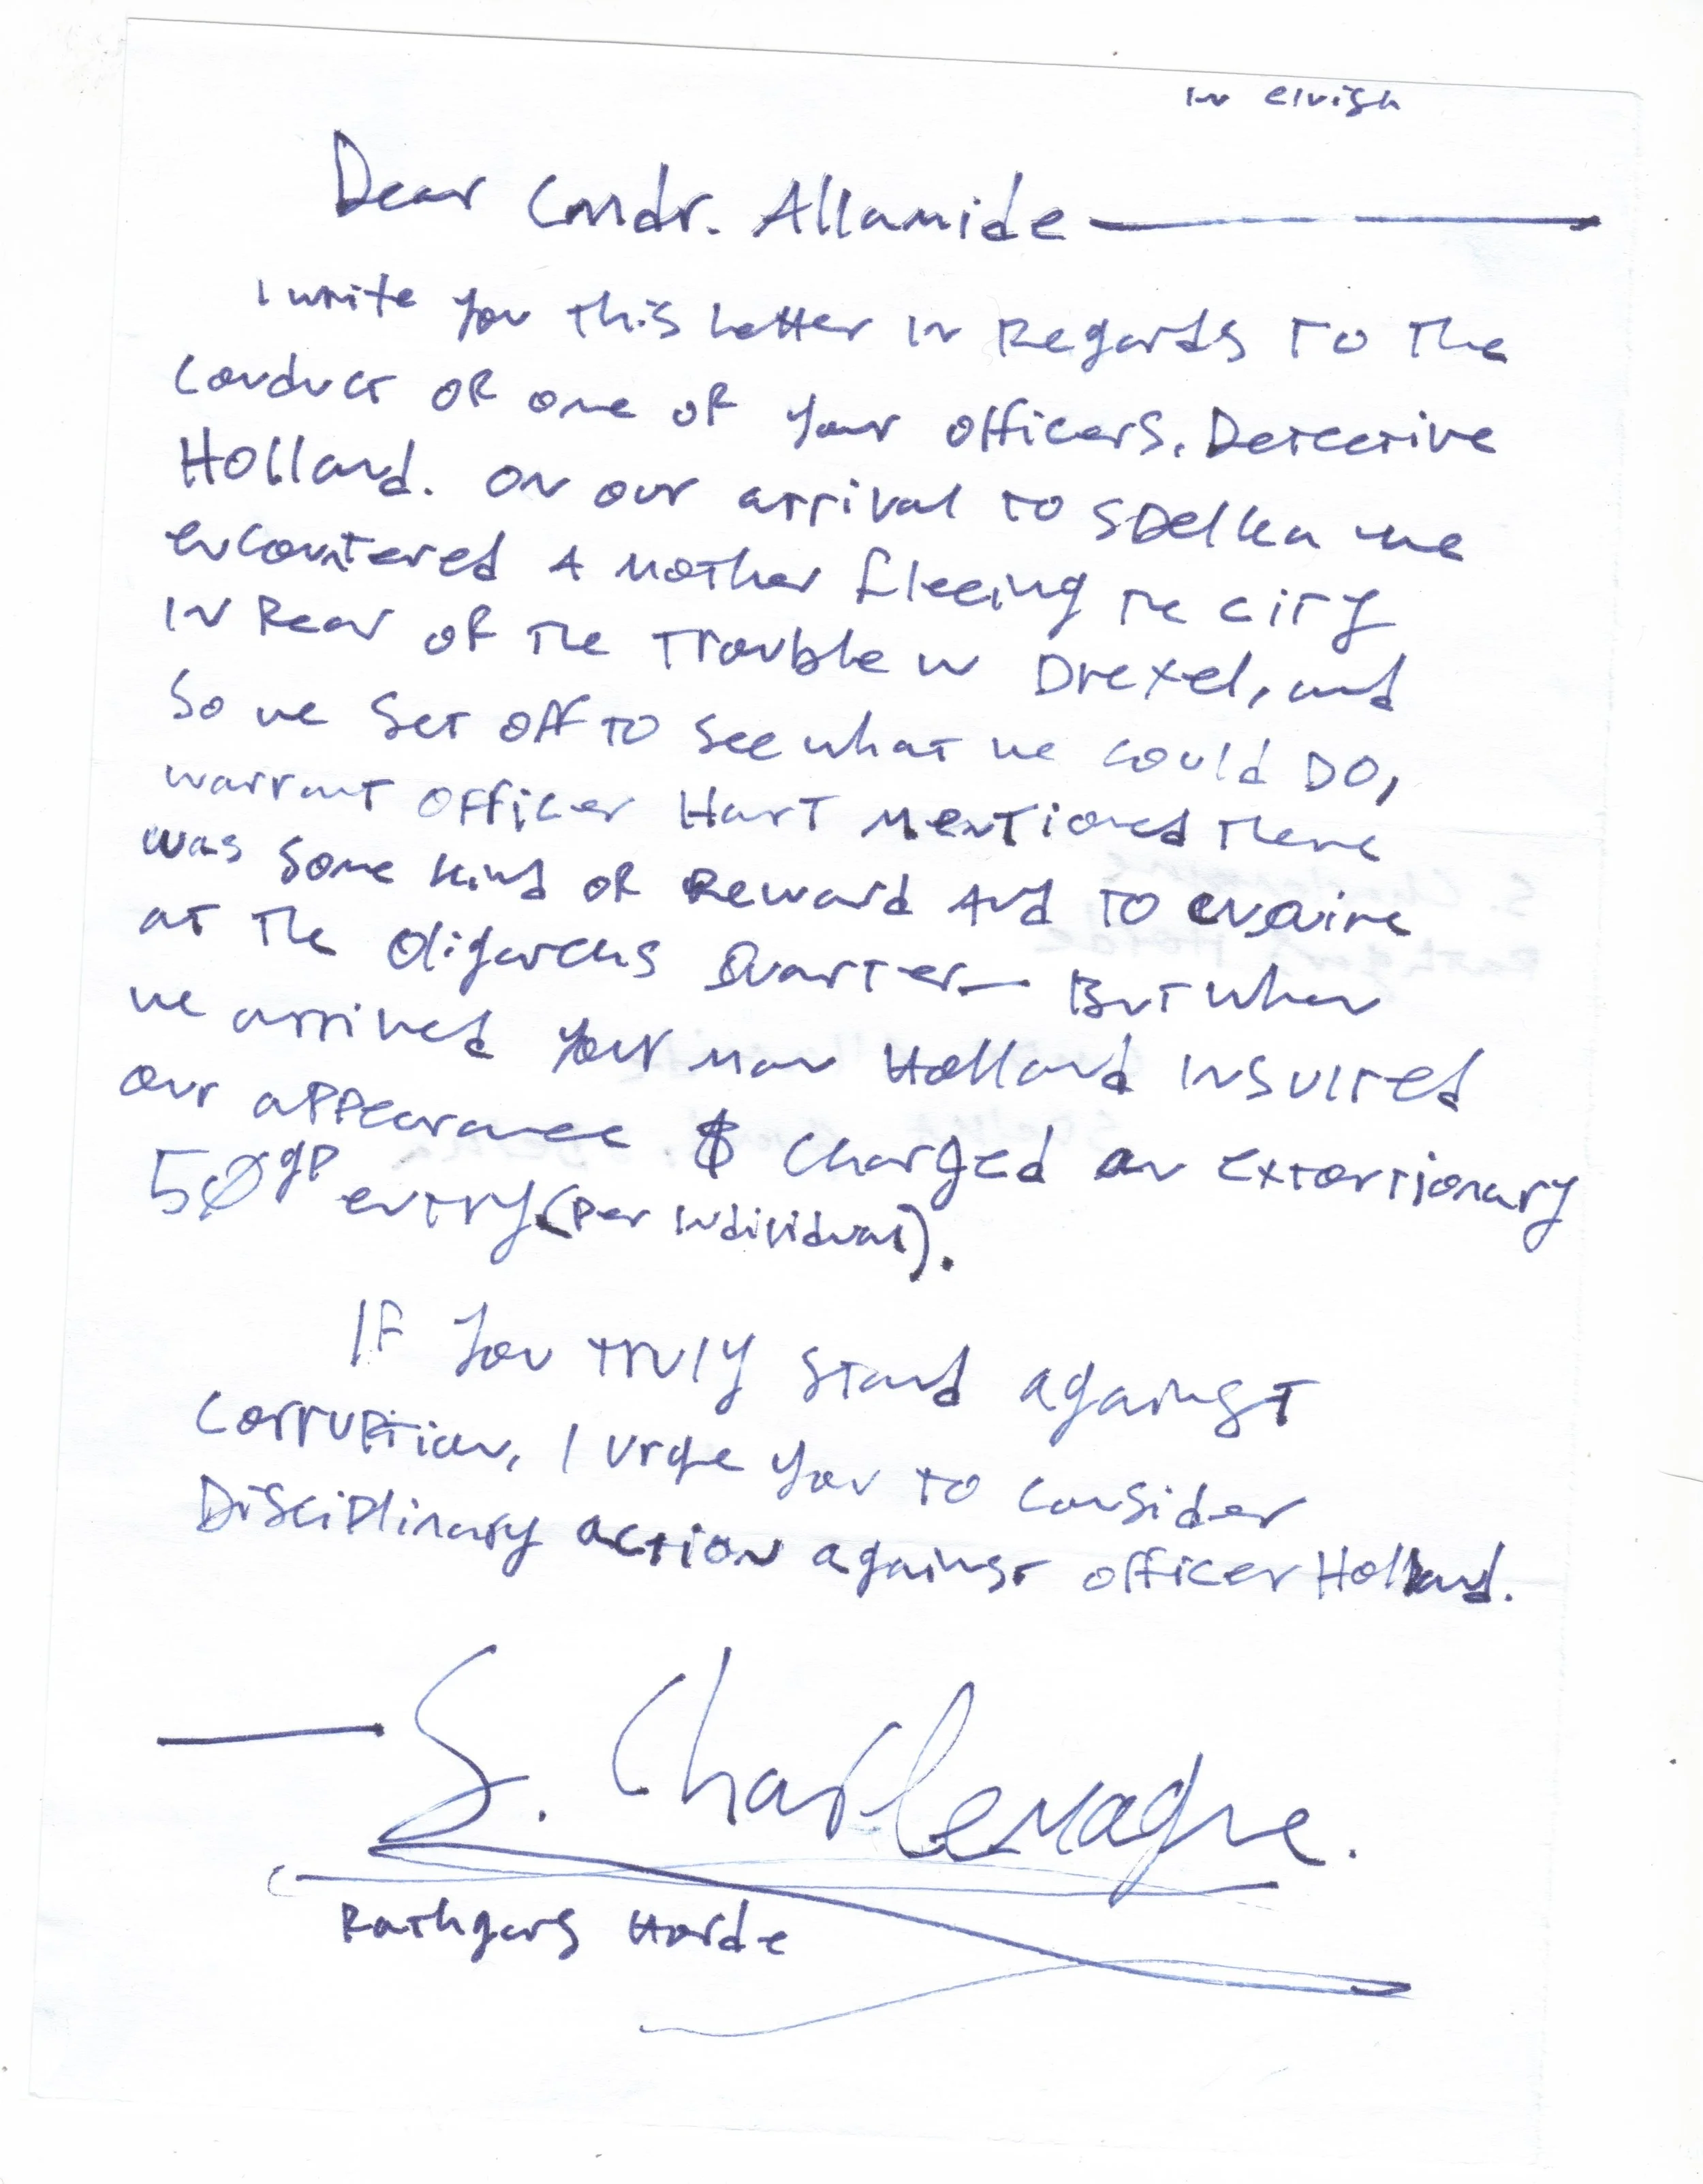 in elvish
Dear Cmdr. Allamide
I write you this letter in regards to the
conduct of one of your officers, Detective
Holland. On our arrival to Sdelka we
encountered a mother fleeing the city
in fear of the trouble in Drexel, and
so we set off to see what we could do,
warrant officer Hart mentioned there
was some kind of reward and to enquire
at the Oligarchs Quarter— But when
we arrived your man Holland insulted
our appearance & charged an extortionary
50gp entry (per individual).
If you truly stand against
corruption, I urge you to consider
disciplinary action against officer Holland.
— S. Charlemagne.
Rathgars Horde